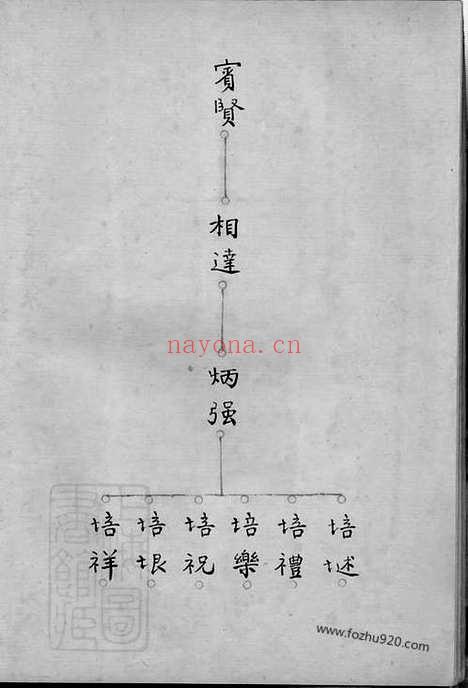 賓賢
相達
炳强
培述
培禮
培樂
培祝
培垠
培祥
nayona.cn
www.fozhu920.com